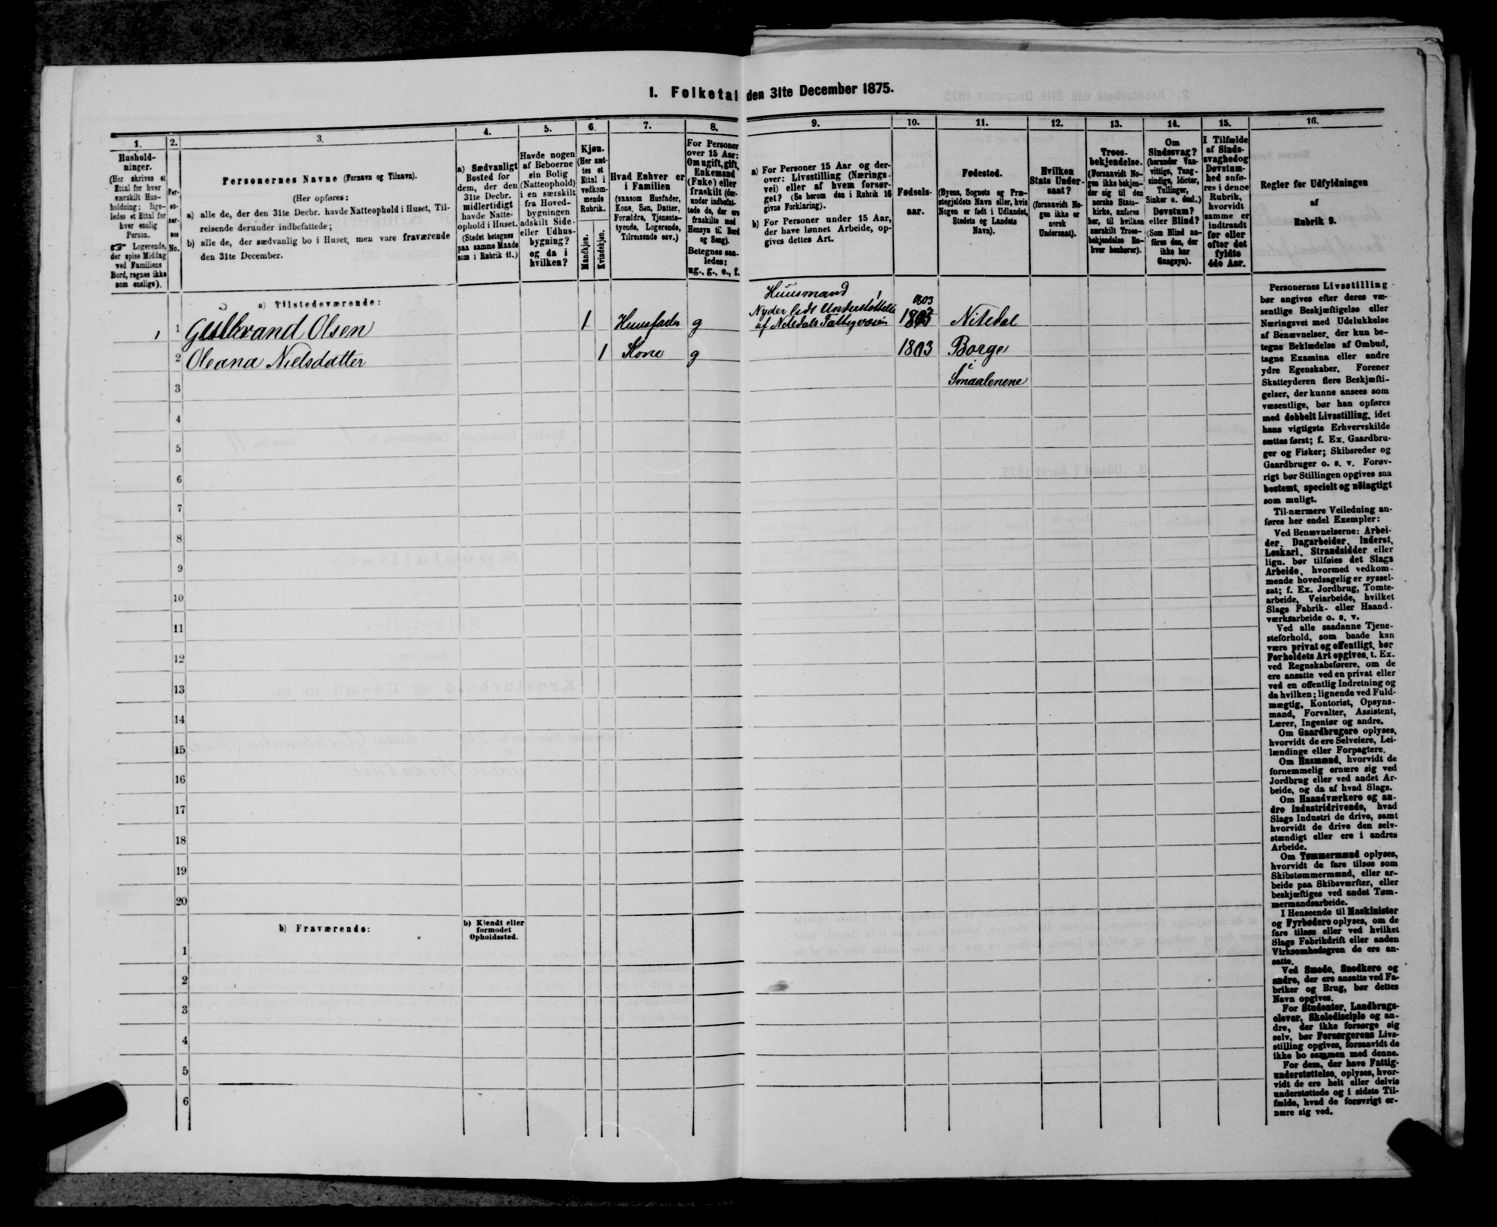 I. Folketal den 31te December 1875.
1.
2.
3.
4.
5.
6.
7.
8.
9.
10.
11.
12.
13.
14.
15.
16.
Hushold-
ninger.
(Her skrives et
Ettal for hver
særskilt Hus-
holdning; lige-
ledes et Ettal for
hver enslig
Person.
☞ Logerende,
der spise Middag
ved Familiens
Bord, regnes ikke
som enslige).
Per-
so-
ner-
nes
No.
Personernes Navne (Fornavn og Tilnavn).
(Her opføres:
a) alle de, der den 31te Decbr. havde Natteophold i Huset, Til-
reisende derunder indbefattede;
b) alle de, der sædvanlig bo i Huset, men vare fraværende
den 31te December.
a) Sædvanligt
Bosted for
dem, der den
31te Decbr.
midlertidigt
havde Natte-
ophold i Huset.
(Stedet betegnes
paa samme Maade
som i Rubrik 11.)
Havde nogen
af Beboerne
sin Bolig
(Natteophold)
i en særskilt
fra Hoved-
bygningen
adskilt Side-
eller Udhus-
bygning?
og da i
hvilken?
Kjøn.
(Her sæt-
tes et
Ettal i
vedkom-
mende
Rubrik.
Mandkjøn.
Kvindekjøn.
Hvad Enhver er
i Familien
(saasom Husfader,
Kone, Søn, Datter,
Forældre, Tjeneste-
tyende, Logerende,
Tilreisende osv.)
For Personer
over 15 Aar:
Om ugift, gift,
Enkemand
(Enke) eller
fraskilt (der-
under indbefat-
tede de, der ere
fraskilte med
Hensyn til Bord
og Seng).
Betegnes saa-
ledes:
ug., g., e., f.
a) For Personer 15 Aar og der-
over: Livsstilling (Nærings-
vei) eller af hvem forsør-
get? (Se herom den i Rubrik 16
givne Forklaring).
b) For Personer under 15 Aar,
der have lønnet Arbeide, op-
gives dettes Art.
Fødsels-
aar.
Fødested.
(Byens, Sognets og Præ-
stegjeldets Navn eller, hvis
Nogen er født i Udlandet,
Stedets og Landets
Navn).
Hvilken
Stats Under-
saat?
(forsaavidt No-
gen ikke er
norsk
Undersaat).
Troes-
bekjendelse.
(Forsaavidt No-
gen ikke bekjen-
der sig til den
norske Stats-
kirke, anføres
her, til hvilken
særskilt Troes-
bekjendelse En-
hver henhører).
Om
Sindssvag?
(herunder Van-
vittige, Tung-
sindige, Idioter,
Tullinger,
Sinker o. desl.)
Døvstum?
eller Blind?
(Som Blind an-
føres den, der
ikke har
Gangsyn).
I Tilfælde
af Sinds-
svaghed og
Døvstum-
hed anfø-
res i denne
Rubrik,
hvorvidt
samme er
indtraadt
før eller
efter det
fyldte
4de Aar.
Regler for Udfyldningen
af
Rubrik 9.
a) Tilstedeværende:
1 1 Gulbrand Olsen 1 Huusfader g Huusmand, Nyder lidt Understøttelse af Nitedals Fattigvæsen 1803 Nitedal
2 Oleana Nielsdatter 1 Kone g 1813 Borge
i
3 Smaalenene
4
5
6
7
8
9
10
11
12
13
14
15
16
17
18
19
20
b) Fraværende:
b) Kjendt eller
formodet
Opholdssted.
1
2
3
4
5
6
Personernes Livsstilling
bør angives efter deres væ-
sentlige Beskjæftigelse eller
Næringsvei med Udelukkelse
af Benævnelser, der kun be-
tegne Beklædelse af Ombud,
tagne Examina eller andre
ydre Egenskaber. Forener
Skatteyderen flere Beskjæfti-
gelser, der kunne ansees som
væsentlige, bør han opføres
med dobbelt Livsstilling, idet
hans vigtigste Erhvervskilde
sættes først; f. Ex. Gaardbru-
ger og Fisker; Skibsreder og
Gaardbruger o. s. v. Forøv-
rigt bør Stillingen opgives saa
bestemt, specielt og nöiagtigt
som muligt.
Til nærmere Veiledning an-
føres her endel Exempler:
Ved Benævnelserne: Arbei-
der, Dagarbeider, Inderst,
Løskarl, Strandsidder eller
lign. bør tilføies det Slags
Arbeide, hvormed vedkom-
mende hovedsagelig er syssel-
sat; f. Ex. Jordbrug, Tomte-
arbeide, Veiarbeide, hvilket
Slags Fabrik- eller Haand-
værksarbeide o. s. v.
Ved alle saadanne Tjene-
steforhold, som baade kan
være privat og offentligt, bør
Forholdets Art opgives, t. Ex.
ved Regnskabsførere, om de
ere ansatte ved en privat eller
ved en offentlig Indretning og
da hvilken; lignende ved Fuld-
mægtig, Kontorist, Opsyns-
mand, Forvalter, Assistent,
Lærer, Ingeniør og andre.
Om Gaardbrugere oplyses,
hvorvidt de ere Selveiere, Lei-
lændinge eller Forpagtere.
Om Husmænd, hvorvidt de
fornemmelig ernære sig ved
Jordbrug eller ved andet Ar-
beide, og da af hvad Slags.
Om Haandværkere og an-
dre Industridrivende, hvad
Slags Industri de drive, samt
hvorvidt de drive den selv-
stændigt eller ere i andres
Arbeide.
Om Tømmermænd oplyses,
hvorvidt de fare tilsøs som
Skibstømmermænd, eller ar-
beide paa Skibsværfter, eller
beskjæftiges ved andet Tøm-
mermandsarbeide.
I Henseende til Maskinister
og Fyrbødere oplyses, om de
fare tilsøs eller ved hvilket
Slags Fabrikdrift eller anden
Virksomhedsgren de ere an-
satte.
Ved Smede, Snedkere og
andre, der ere ansatte ved Fa-
briker og Brug, bør dettes
Navn opgives.
For Studenter, Landbrugs-
elever, Skoledisciple og an-
dre, der ikke forsørge sig
selv, bør Forsørgerens Livs-
stilling opgives, forsaavidt de
ikke bo sammen med denne.
For dem, der have Fattig-
understøttelse, oplyses, hvor-
vidt de ere helt eller delvis
understøttede og i sidste Til-
fælde, hvad de forøvrigt er-
nære sig ved.